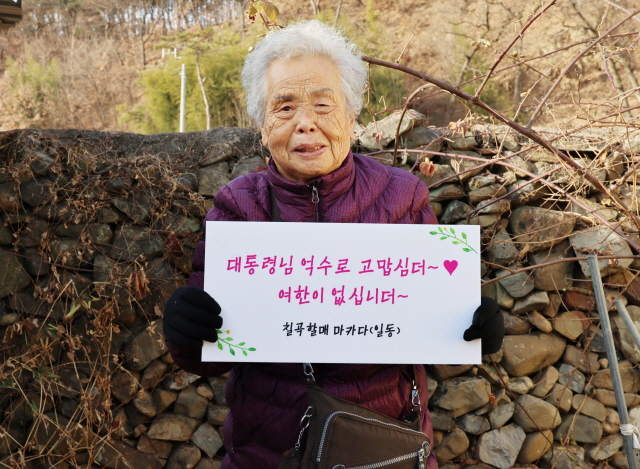 대통령님 억수로 고맙심더~♥
여한이 없십니더~
칠곡할매 마카다(일동)